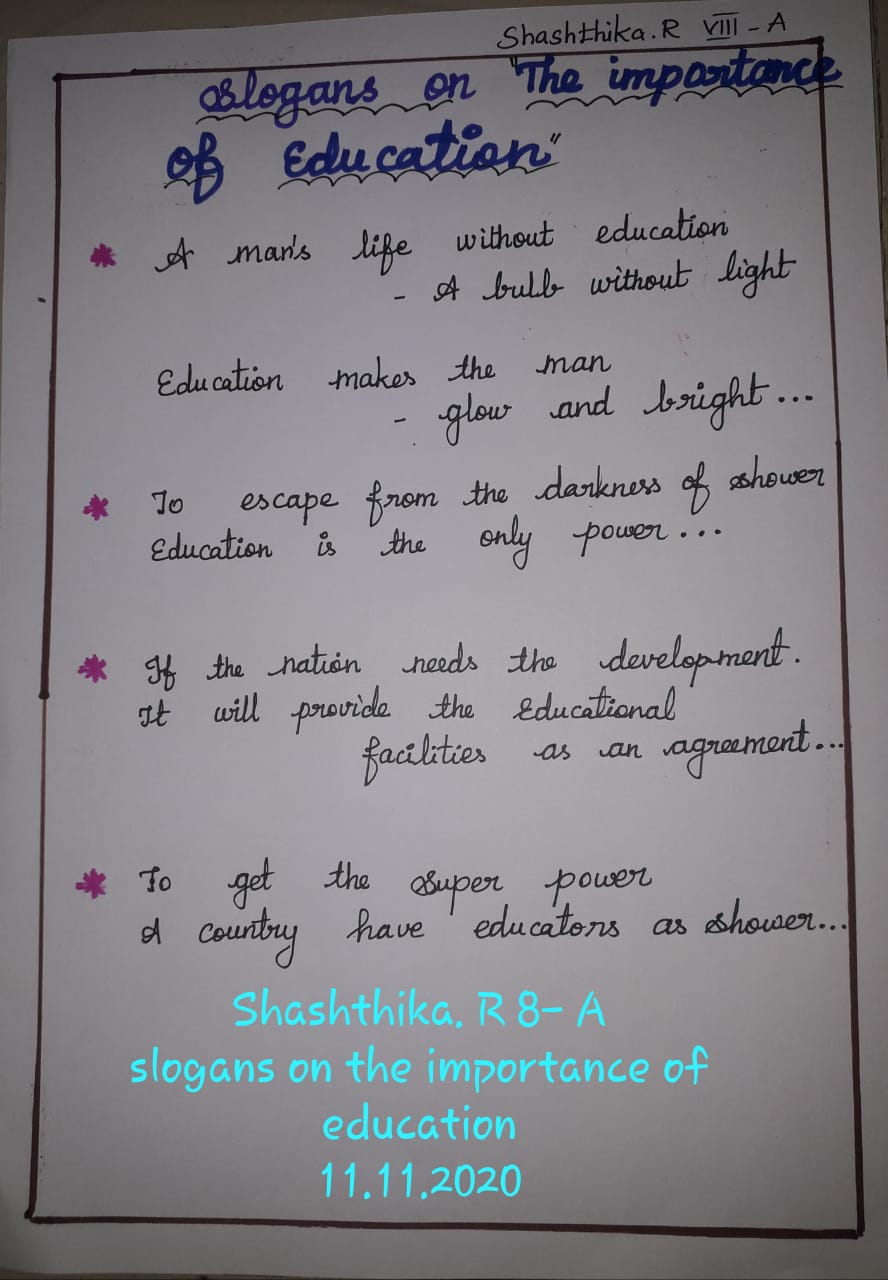 Shashthika.R VIII - A
Slogans on "The importance
of Education"
* A man's life without education
- A bulb without light
Education makes the man
- glow and bright...
* To escape from the darkness of shower
Education is the only power...
* If the nation needs the development.
It will provide the Educational
facilities as an agreement...
* To get the super power
A country have educators as shower...
Shashthika. R 8- A
slogans on the importance of
education
11.11.2020